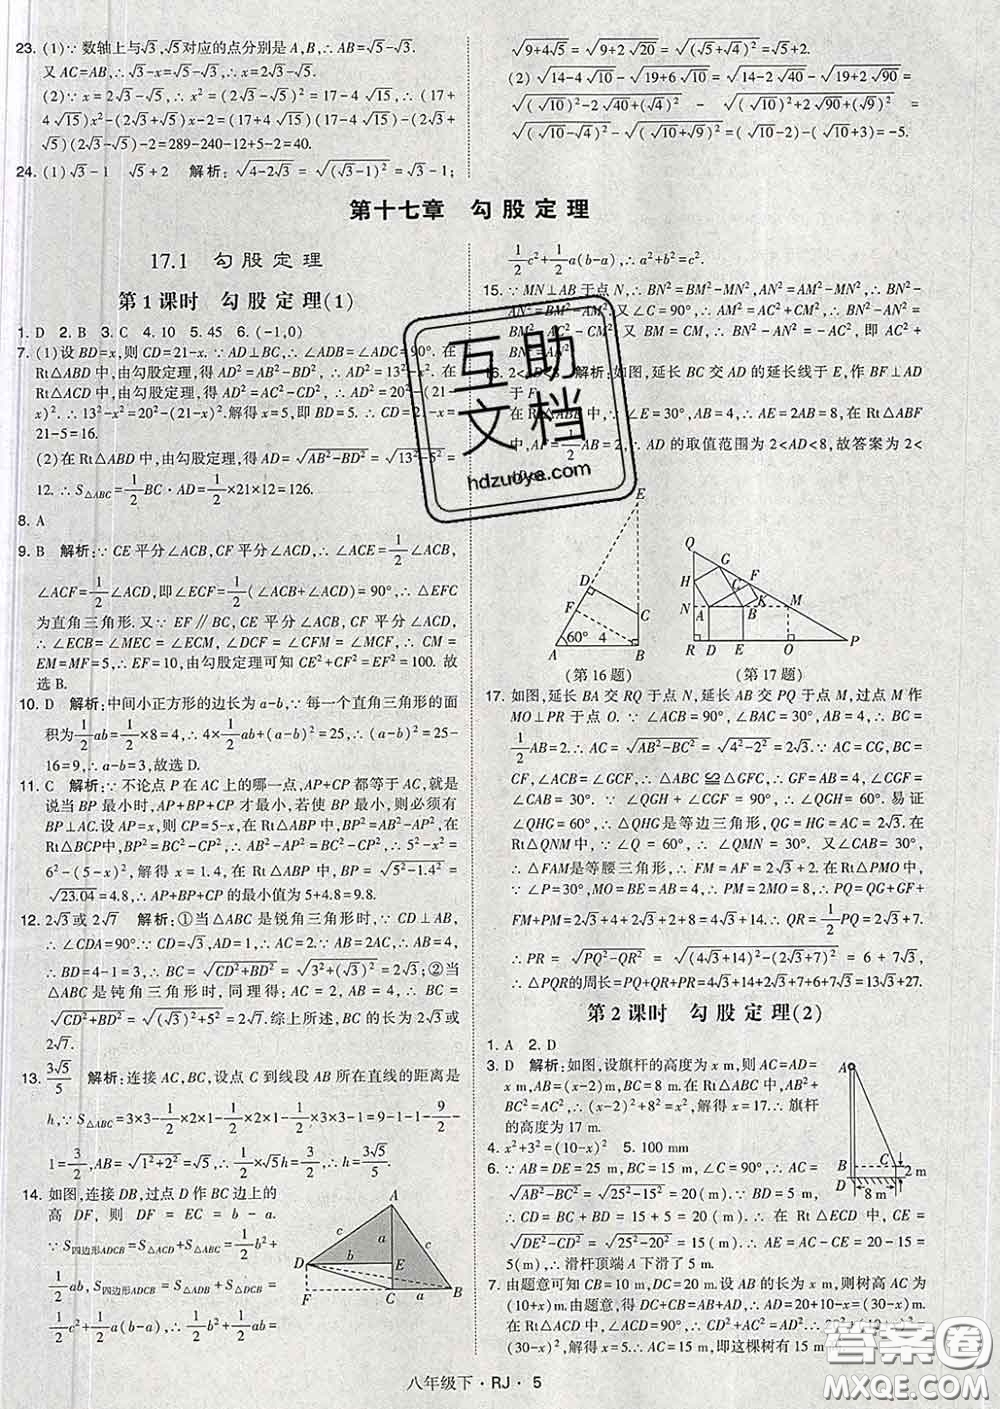 23. (1)∵ 数轴上与√3,√5对应的点分别是 A,B,∴ AB=√5-√3.
又 AC=AB,∴ √3-x=√5-√3,∴ x=2√3-√5.
(2)∵ x=2√3-√5,∴ x²=(2√3-√5)²=17-4√15,∴ (17+
4√15)x²-(2√3+√5)x-2=(17+4√15)(17-4√15)-(2√3+
√5)(2√3-√5)-2=289-240-12+5-2=40.
24. (1)√3-1 √5+2 解析:√(4-2√3)=√((√3-1)²)=√3-1;
√(9+4√5)=√(9+2√20)=√((√5+√4)²)=√5+2.
(2) √(14-4√10)-√(19+6√10)=√(14-2√40)-√(19+2√90)=
√((√10)²-2√40+(√4)²)-√((√10)²+2√90+(√9)²)=
√((√10-√4)²)-√((√10+√9)²)=(√10-2)-(√10+3)=-5.
第十七章 勾股定理
17.1 勾股定理
第1课时 勾股定理(1)
1. D 2. B 3. C 4. 10 5. 45 6. (-1,0)
7. (1)设 BD=x,则 CD=21-x.∵ AD⊥BC,∴ ∠ADB=∠ADC=90°. 在
Rt△ABD 中,由勾股定理,得 AD²=AB²-BD²,∴ AD²=13²-x². 在
Rt△ACD 中,由勾股定理,得 AD²=AC²-CD²,∴ AD²=20²-(21-
x)².∴ 13²-x²=20²-(21-x)².解得 x=5,即 BD=5.∴ CD=21-x=
21-5=16.
(2)在 Rt△ABD 中,由勾股定理,得 AD=√(AB²-BD²)=√(13²-5²)=
12.∴ S△ABC=1/2 BC·AD=1/2×21×12=126.
8. A
9. B 解析:∵ CE 平分∠ACB,CF 平分∠ACD,∴ ∠ACE=1/2∠ACB,
∠ACF=1/2∠ACD,即∠ECF=1/2(∠ACB+∠ACD)=90°,∴ △EFC
为直角三角形.又∵ EF∥BC,CE 平分∠ACB,CF 平分∠ACD,
∴ ∠ECB=∠MEC=∠ECM,∠DCF=∠CFM=∠MCF,∴ CM=
EM=MF=5,∴ EF=10,由勾股定理可知 CE²+CF²=EF²=100. 故
选 B.
10. D 解析:中间小正方形的边长为 a-b,∵ 每一个直角三角形的面
积为1/2ab=1/2×8=4,∴ 4×1/2ab+(a-b)²=25,∴ (a-b)²=25-
16=9,∴ a-b=3,故选 D.
11. C 解析:∵ 不论点 P 在 AC 上的哪一点,AP+CP 都等于 AC,就是
说当 BP 最小时,AP+BP+CP 才最小,若使 BP 最小,则必须有
BP⊥AC.设 AP=x,则 CP=5-x,在 Rt△ABP 中,BP²=AB²-AP²,在
Rt△BCP中,BP²=BC²-CP²,∴ AB²-AP²=BC²-CP²,∴ 5²-x²=
6²-(5-x)²,解得 x=1.4,∴ 在 Rt△ABP 中,BP=√(5²-1.4²)=
√23.04=4.8,∴ AP+BP+CP 的最小值为 5+4.8=9.8.
12. 2√3或 2√7 解析:①当△ABC 是锐角三角形时,∵ CD⊥AB,
∴ ∠CDA=90°.∵ CD=√3,AD=1,∴ AC=2.∵ AB=2AC,∴ AB=4,
∴ BD=4-1=3,∴ BC=√(CD²+BD²)=√(3²+(√3)²)=2√3;②当
△ABC 是钝角三角形时,同理得:AC=2,AB=4,∴ BC=
√(CD²+BD²)=√((√3)²+5²)=2√7.综上所述,BC 的长为 2√3或
2√7.
13. 3√5/5 解析:连接 AC,BC,设点 C 到线段 AB 所在直线的距离是
h,∵ S△ABC=3×3-1/2×2×1-1/2×2×1-1/2×3×3-1=9-1-1-9/2-
1=3/2,AB=√(1²+2²)=√5,∴ 1/2×√5h=3/2,∴ h=3√5/5.
14. 如图,连接 DB,过点 D 作 BC 边上的
高 DF, 则 DF = EC = b - a.
∵ S四边形ADCB=S△ACD+S△ABC=1/2b²+
1/2ab,S四边形ADCB=S△ADB+S△DCB=
1/2c²+1/2a(b-a),∴ 1/2b²+1/2ab=
A
c
c
a
D
b
E
F
C
a
B
1/2c²+1/2a(b-a),∴ a²+b²=c².
15. ∵ MN⊥AB 于点 N,∴ BN²=BM²-MN²,AN²=AM²-MN²,∴ BN²-
AN²=BM²-AM².又∵∠C=90°,∴ AM²=AC²+CM²,∴ BN²-AN²=
BM²-AC²-CM².又 BM=CM,∴ BN²-AN²=-AC²,即 AC²+
BN²=AN².
16. 2<AD<8 解析:如图,延长 BC 交 AD 的延长线于 E,作 BF⊥AD
于 F.
在 Rt△ABE 中,∵∠E=30°,AB=4,∴ AE=2AB=8,在 Rt△ABF
中,AF=1/2AB=2,∴ AD 的取值范围为 2<AD<8,故答案为 2<
AD<8.
E
D
F
C
60°
4
A
B
(第16题)
Q
G
H
C
F
N
A
B
K
M
R
D
E
O
P
(第17题)
17. 如图,延长 BA 交 RQ 于点 N,延长 AB 交 PQ 于点 M,过点 M 作
MO⊥PR 于点 O. ∵∠ACB=90°,∠BAC=30°,AB=4,∴ BC=
1/2AB=2.∴ AC=√(AB²-BC²)=√(4²-2²)=2√3.∵ AC=GC,BC=
CF,∠ACB=∠GCF,∴ △ABC≌△GFC.∴ ∠CGF=
∠CAB=30°.∴ ∠QGH+∠CGF=60°.∴ ∠QGH=60°. 易证
∠QHG=60°,∴ △QHG是等边三角形,QG=HG=AC=2√3.在
Rt△QNM 中,∵ ∠Q=60°,∴ ∠QMN=30°. 又∵ ∠FAM=30°,
∴ △FAM是等腰三角形,∴ FM=AF=2√3+2,在 Rt△PMO 中,
∵ ∠P=30°,MO=BE=AB=4,∴ PM=2MO=8.∴ PQ=QG+GF+
FM+PM=2√3+4+2√3+2+8=4√3+14.∴ QR=1/2PQ=2√3+7.
∴ PR=√(PQ²-QR²)=√((4√3+14)²-(2√3+7)²)=6+7√3,
∴ △PQR的周长=PQ+QR+PR=4√3+14+2√3+7+6+7√3=13√3+27.
第2课时 勾股定理(2)
1. A 2. D
3. D 解析:如图,设旗杆的高度为 x m,则 AC=AD=
x m,AB=(x-2)m,BC=8 m. 在 Rt△ABC 中,AB²+
BC²=AC²,∴ (x-2)²+8²=x²,解得 x=17.∴ 旗杆
的高度为 17 m.
4. x²+3²=(10-x)² 5. 100 mm
6. ∵ AB=DE=25 m,BC=15 m,∠C=90°,∴ AC=
√(AB²-BC²)=√(25²-15²)=20(m).∵ BD=5 m,
∴ CD=BC+BD=15+5=20(m).在 Rt△ECD 中,CE=
√(DE²-CD²)=√(25²-20²)=15(m).∴ AE=AC-CE=20-15=
5(m).∴ 滑杆顶端A 下滑了 5 m.
A
B
C
D
2 m
8 m
7. 由题意可知 CB=10 m,DC=20 m.设 AB 的长为 x m,则树高 AC 为
(10+x)m.由题意,得 DC+CB=AB+AD,∴ AD=20+10-x=(30-x)m.
在 Rt△ACD中,∠ACD=90°,∴ DC²+AC²=AD²,∴ 20²+(10+x)²=
(30-x)².解得 x=5,∴ AC=10+x=15,即这棵树有 15 m
八年级下·RJ·5
互助文档
hdzuoye.com
答案圈
MXQE.COM